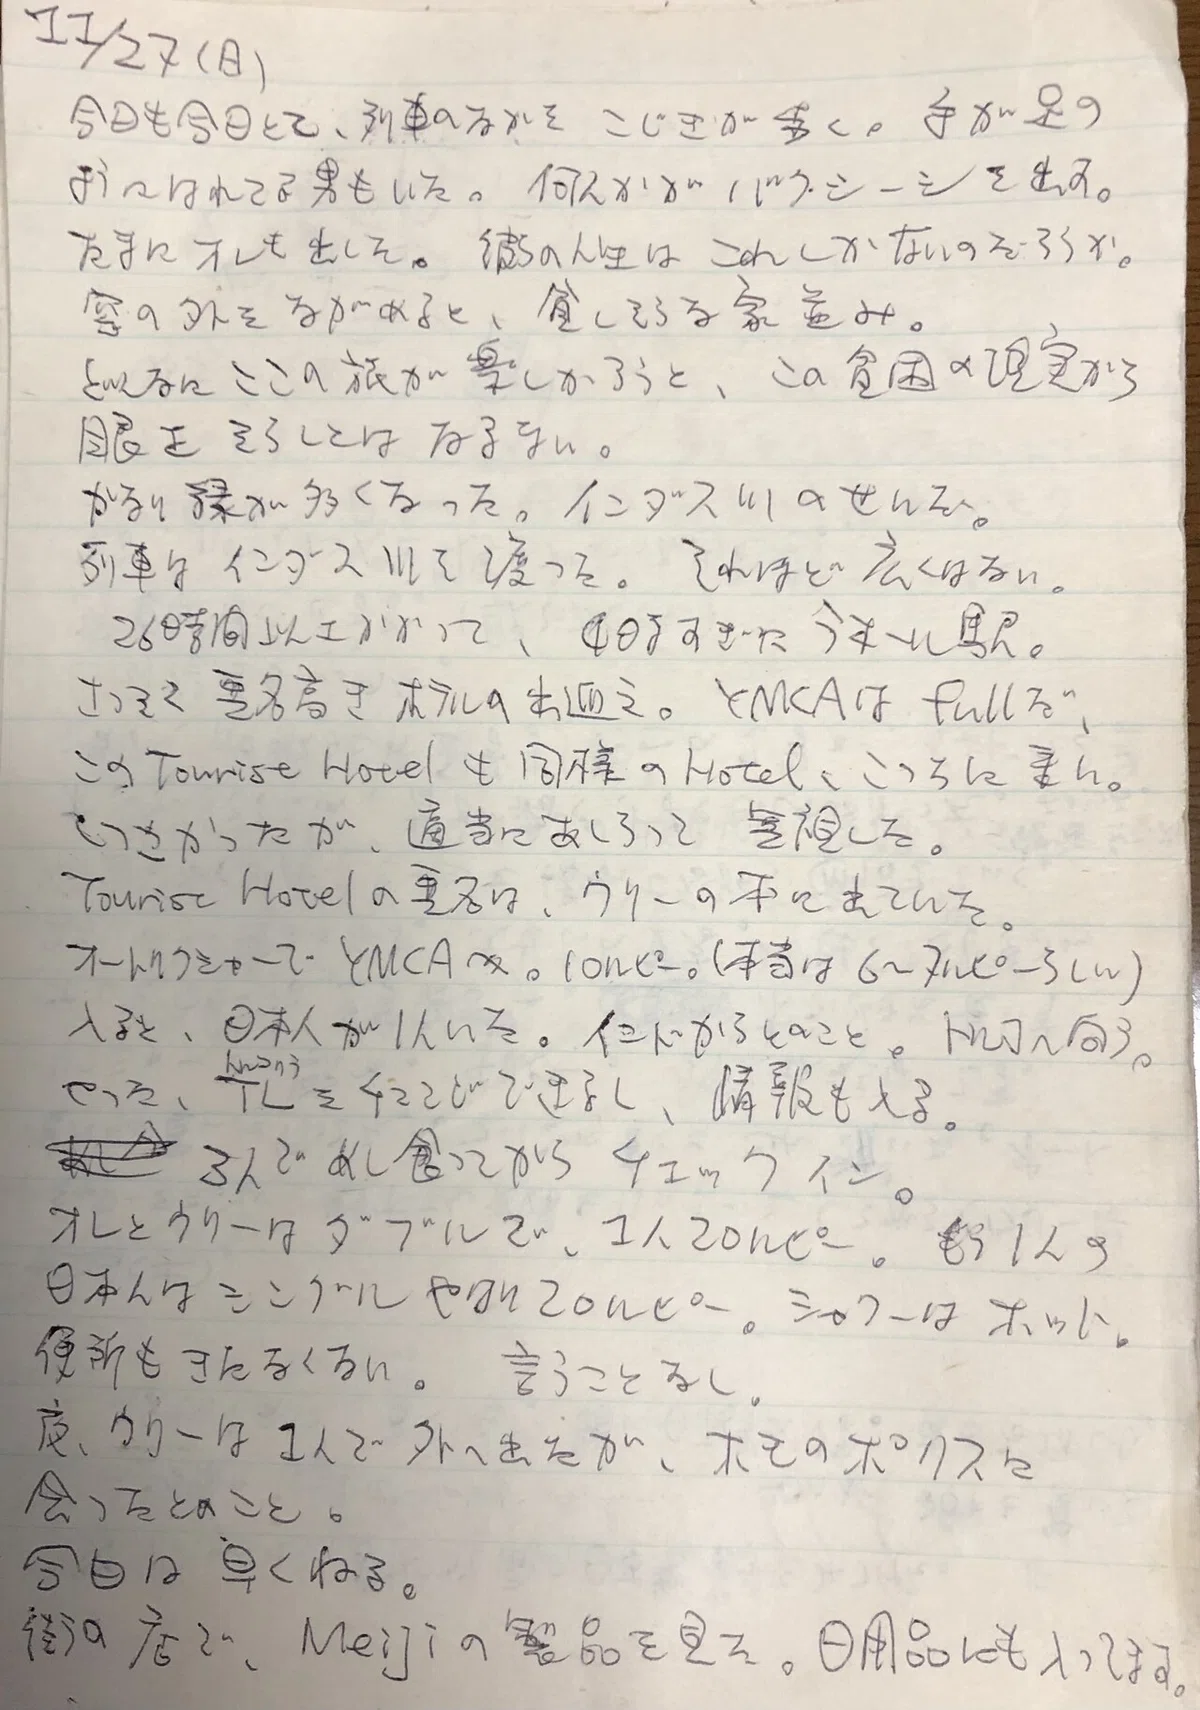 11/27(日)
今日も今日とて、列車のなかを こじきが歩く。手が足の
ようにはれてる男もいた。何人かが バクシーシを出す。
たまにオレも出した。彼らの人生は これしかないのだろうか。
窓の外をながめると、貧しそうな家並み。
どんなに ここの旅が楽しかろうと、この貧困の現実から
眼を そらしては ならない。
かなり緑が多くなった。インダス川のせんだ。
列車は インダス川を渡った。それほど 広くはない。
26時間以上かかって、4日すぎに ラホール駅。
さっそく 悪名高き ホテルの出迎え。YMCAは fullだ、
このTourist Hotelも同様のHotel、こっちに 来い。
しつこかったが、適当にあしらって 無視した。
Tourist Hotelの悪名は、ウリーの本に出ていた。
オートリクシャーで YMCAへ。10ルピー。(本当は 6〜7ルピーらしい)
入ると、日本人が1人いた。インドからとのこと。トルコへ向う。
やった、TLをチェンジできるし、情報も入る。
トルコリラ
3人でめし食ってから チェックイン。
オレとウリーは ダブルで、1人20ルピー。もう1人の
日本人は シングル やはり20ルピー。シャワーは ホット。
便所も きたなくない。 言うことなし。
夜、ウリーは 1人で 外へ出たが、ホモのポリスに
会ったとのこと。
今日は 早くねる。
街の 店で、Meijiの 製品を見た。日用品にも入ってます。